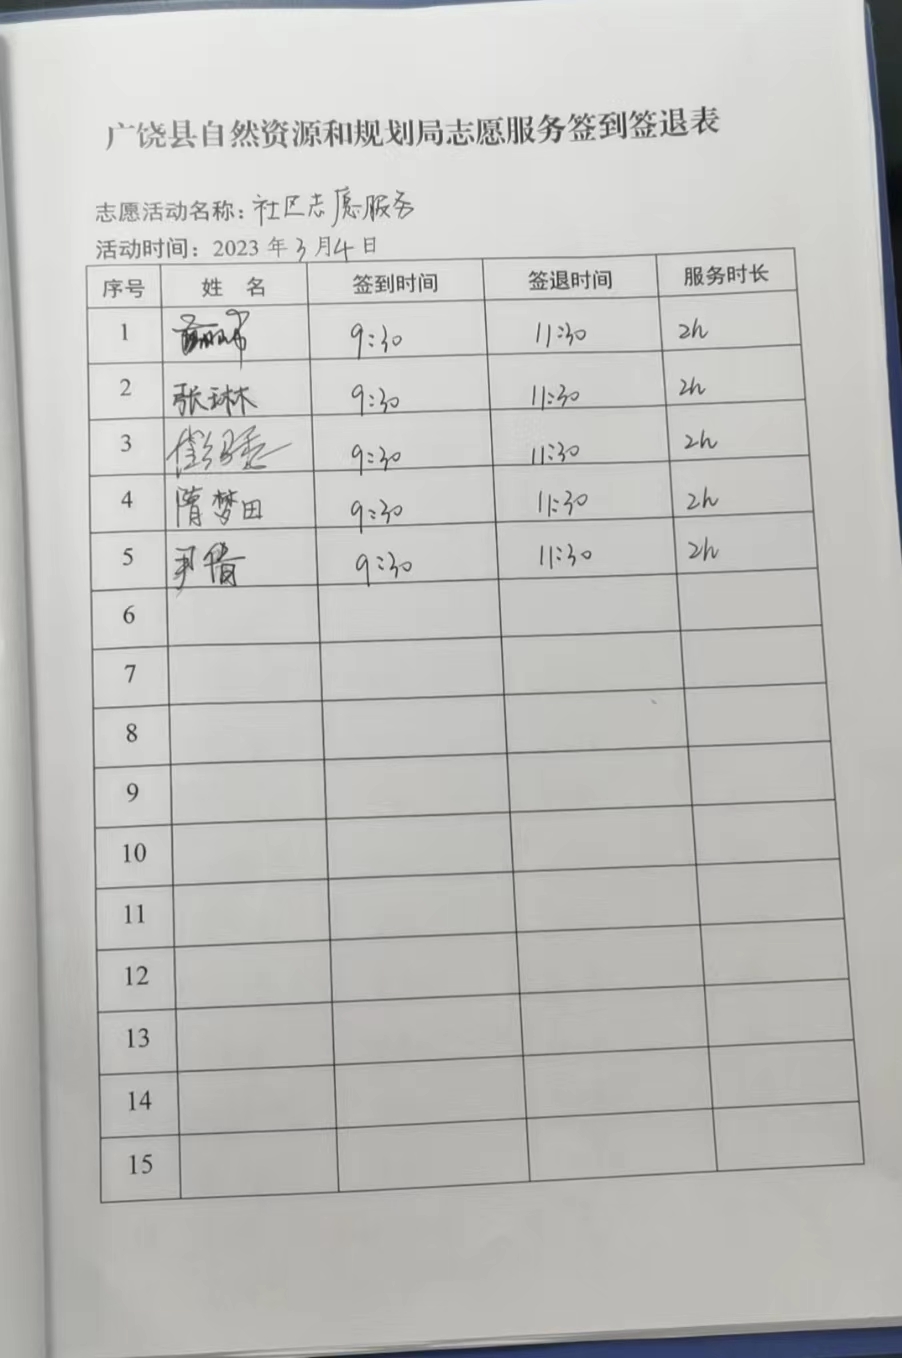 广饶县自然资源和规划局志愿服务签到签退表
志愿活动名称：社区志愿服务
活动时间：2023年3月4日
序号 姓 名 签到时间 签退时间 服务时长
1 9:30 11:30 2h
2 张琳 9:30 11:30 2h
3 9:30 11:30 2h
4 隋梦田 9:30 11:30 2h
5 尹倩 9:30 11:30 2h
6
7
8
9
10
11
12
13
14
15